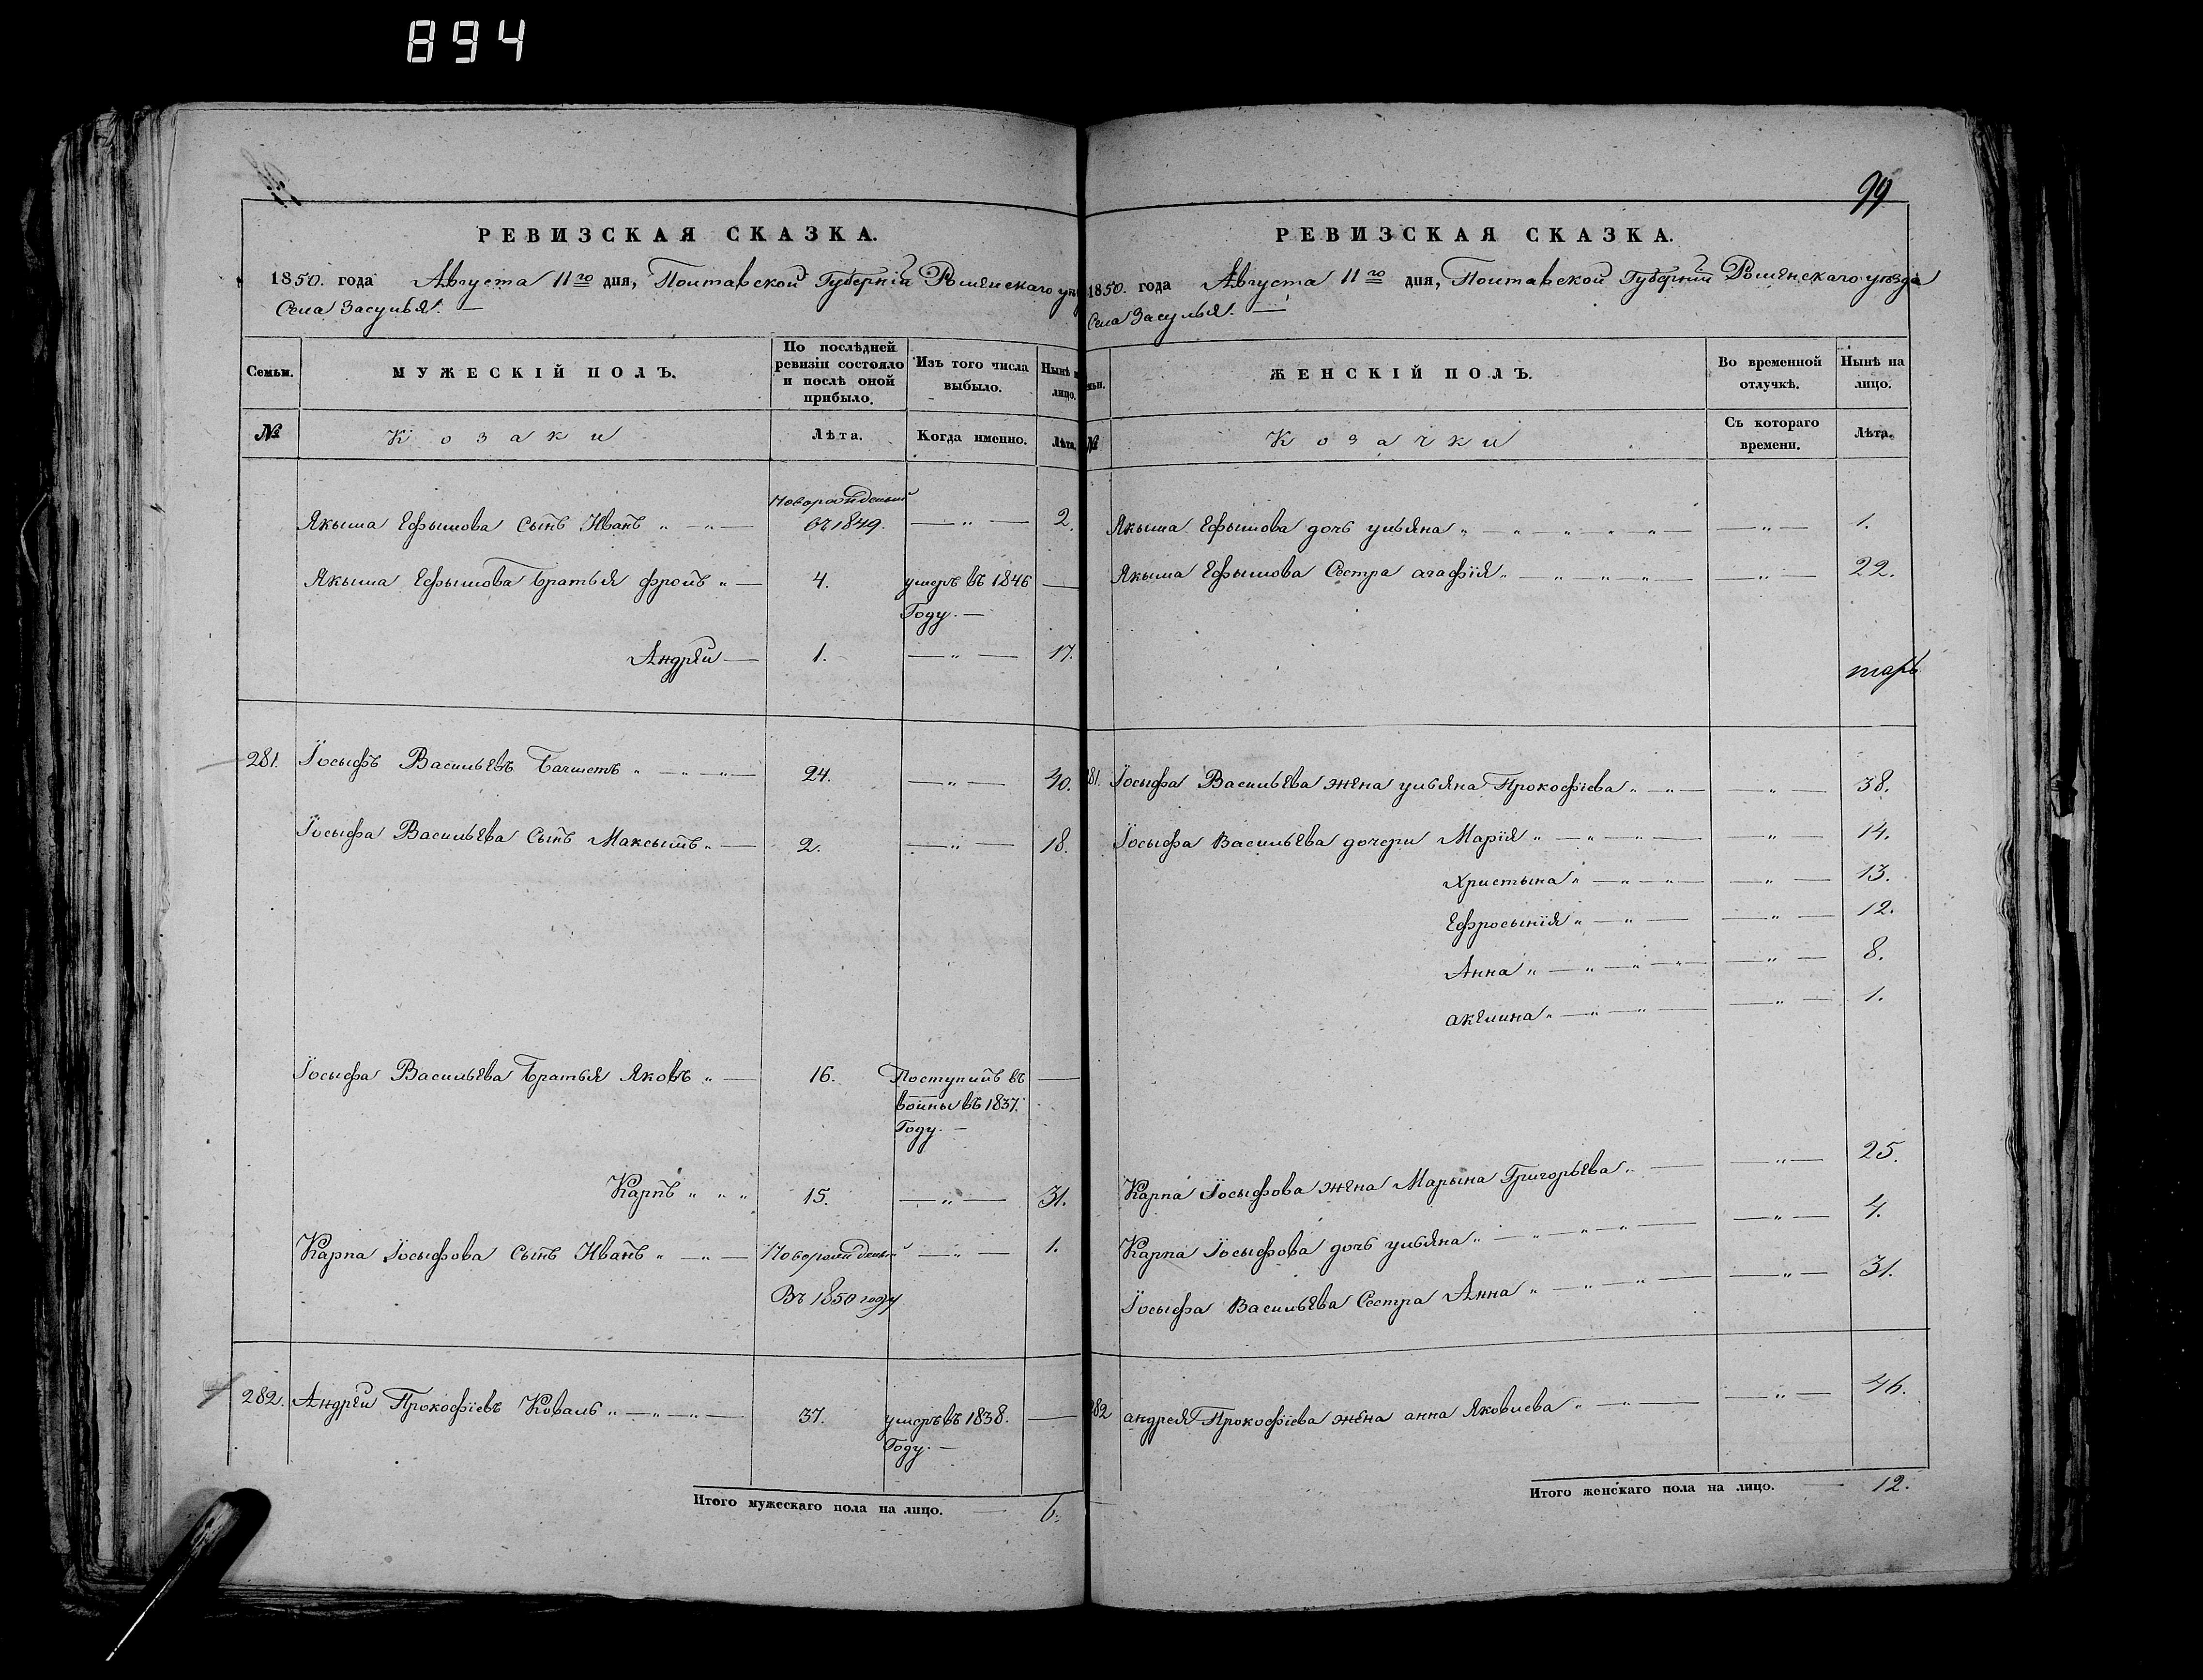 894
РЕВИЗСКАЯ СКАЗКА.
1850. года Августа 11го дня, Полтавской Губерніи Роменскаго
Села Засулья. —
Семьи.
МУЖЕСКІЙ ПОЛЪ.
По послѣдней ревизіи состояло и послѣ оной прибыло.
Изъ того числа выбыло.
Нынѣ на лицо.
№
Козаки
Лѣта.
Когда именно.
Лѣта.
Новорожденный
Якыма Ефымова Сынъ Иванъ „ — „ — въ 1849. — „ — 2.
Якыма Ефымова Братья Фролъ „ — 4. умеръ въ 1846 —
Году. —
Андрей — 1. — „ — 17.
281. Іосыфъ Васильевъ „ — „ — „ — 24. — „ — 40.
Іосыфа Васильева Сынъ Максымъ „ — 2. — „ — 18.
Іосыфа Васильева Братья Яковъ „ — 16. Поступилъ въ —
воины въ 1837.
Году. —
Карпъ „ „ „ 15. — „ — 31.
Карпа Іосыфова Сынъ Иванъ „ — „ — Новорожденный — „ — 1.
Въ 1850 году
282. Андрей Прокофіевъ Коваль „ — „ — „ — 37. умеръ въ 1838. —
Году. —
Итого мужескаго пола на лицо. — 6.
99
РЕВИЗСКАЯ СКАЗКА.
1850. года Августа 11го дня, Полтавской Губерніи Роменскаго уѣзда
Села Засулья. —
ьи.
ЖЕНСКІЙ ПОЛЪ.
Во временной отлучкѣ.
Нынѣ на лицо.
№
Козачки
Съ котораго времени.
Лѣта.
Якыма Ефымова дочь ульяна „ — „ — „ — „ — „ — — „ — 1.
Якыма Ефымова Сестра агафія „ — „ — „ — „ — — „ — 22.
281. Іосыфа Васильева жена ульяна Прокофіева „ — „ — — „ — 38.
Іосыфа Васильева дочери Марія „ — „ — „ — — „ — 14.
Христына „ — „ — „ — — „ — 13.
Ефросынія „ — „ — — „ — 12.
Анна „ — „ — „ — „ — „ — 8.
акелина „ — „ — „ — — „ — 1.
Карпа Іосыфова жена Марына Григорьева „ — — „ — 25.
Карпа Іосыфова дочь ульяна „ — „ — „ — „ — — „ — 4.
Іосыфа Васильева Сестра Анна „ — „ — „ — — „ — 31.
282 андрея Прокофіева жена анна Яковлева „ — „ — — „ — 46.
Итого женскаго пола на лицо. — 12.